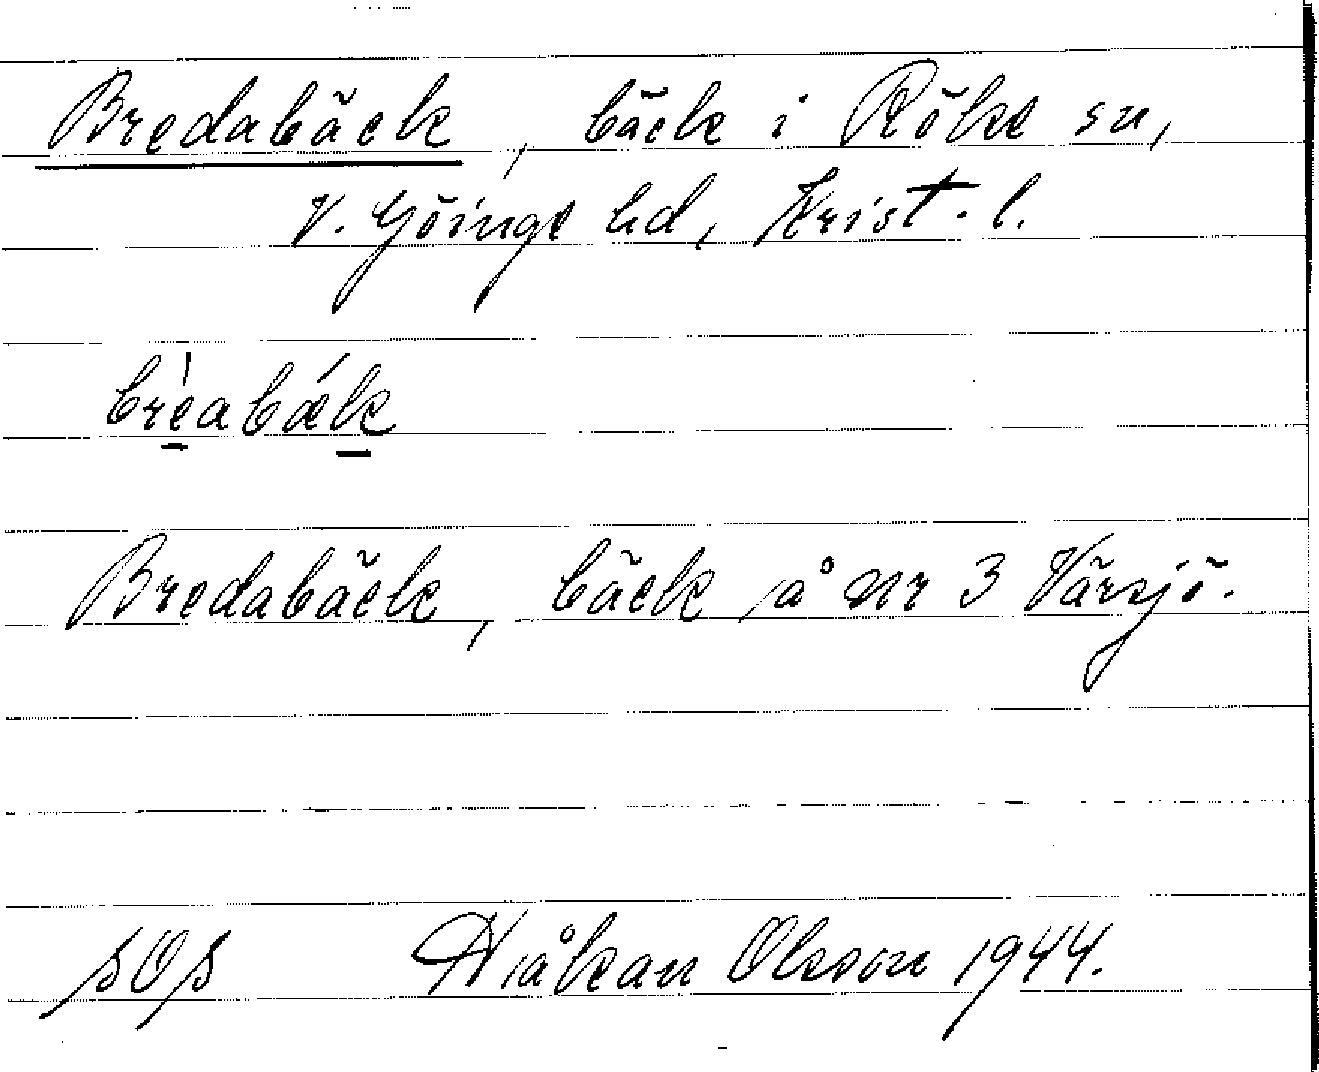 Bredabäck, bäck i Röke sn,
V. Göinge hd, Krist. l.
brèabǽk
Bredabäck, bäck å nr 3 Värsjö.
SOS Håkan Olsson 1944.